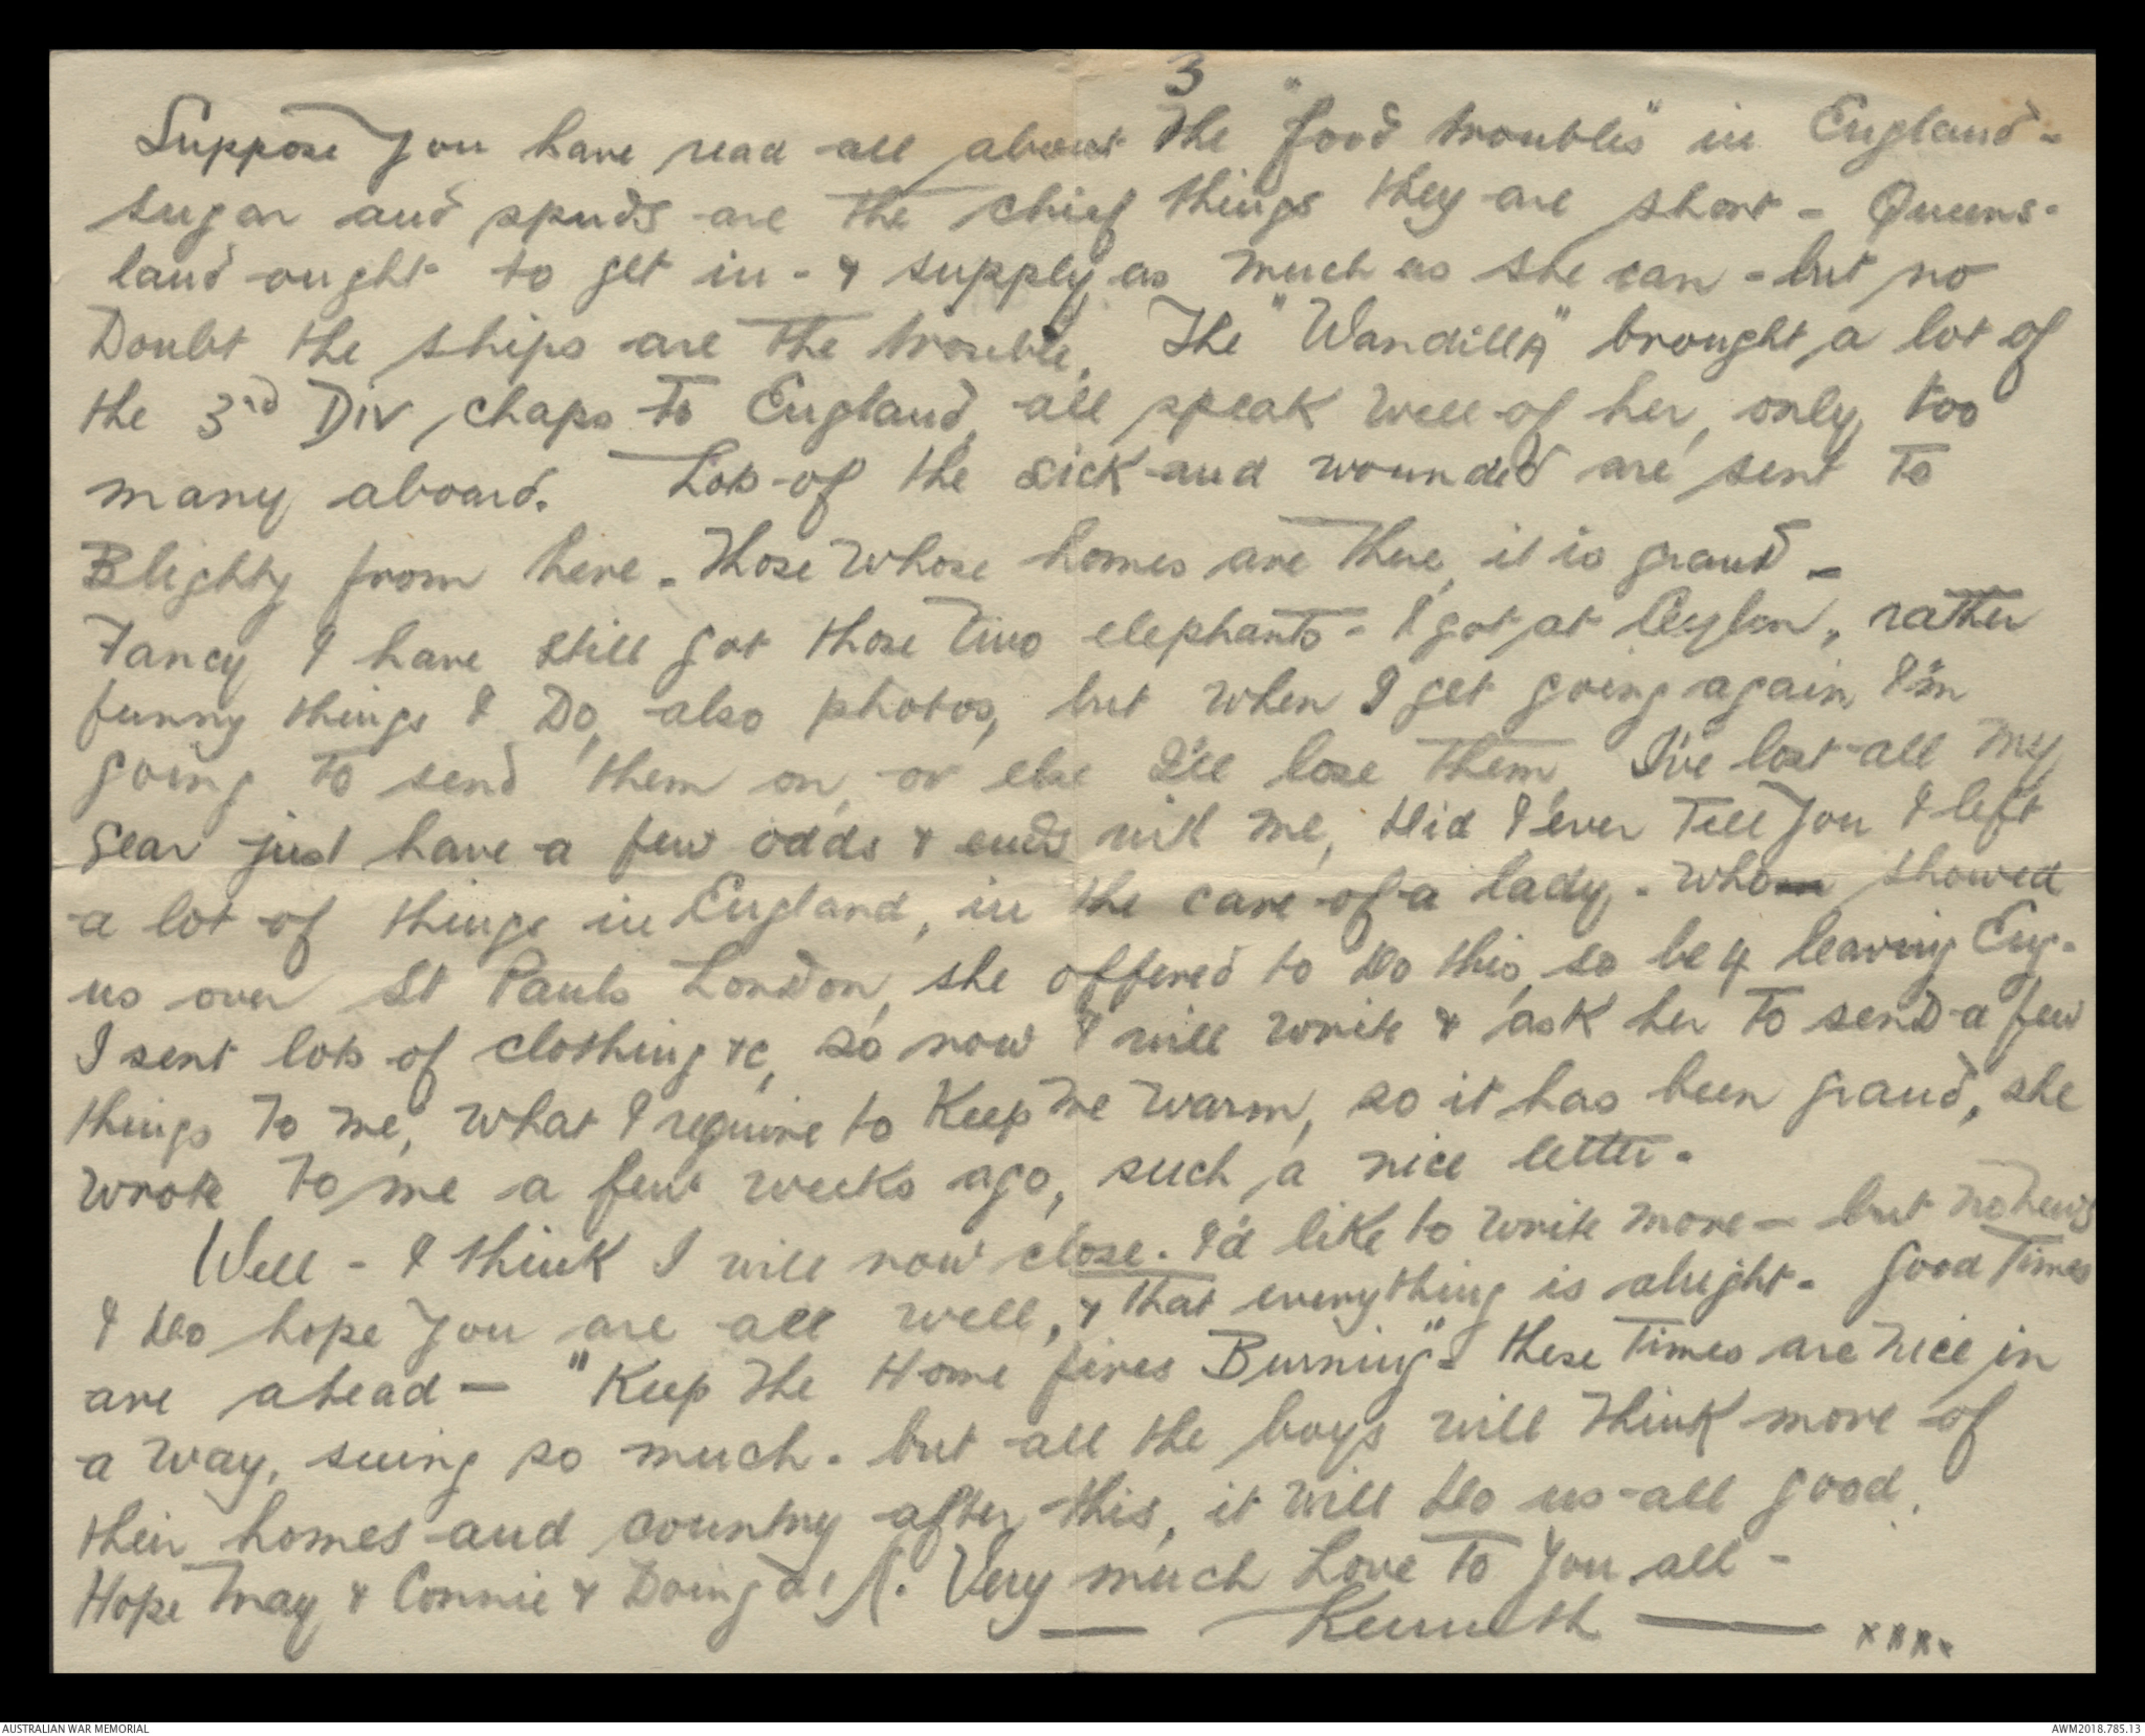 3
Suppose you have read all about the "food troubles" in England -
sugar and spuds are the chief things they are short - Queens-
land ought to get in - & supply as much as she can - but no
Doubt the ships are the trouble. The "Wandilla" brought a lot of
the 3rd Div, chaps to England, all speak well of her, only, too
many aboard. Lots of the sick and wounded are sent to
Blighty from here. Those whose homes are there, it is grand -
Fancy I have still got those two elephants - I got at Ceylon, rather
funny things I Do, also photos, but when I get going again, I'm
going to send them on, or else I'll lose them. I've lost all my
gear just have a few odds & ends with me, Did I ever tell you I left
a lot of things in England, in the care of a lady, - who showed
us over St Pauls London, she offered to Do this, so be 4 leaving Eng-
I sent lots of clothing &c, so now I will write & ask her to send a few
things to me, what I require to Keep me warm, so it has been grand, she
wrote to me a few weeks ago, such a nice letter -
Well - I think I will now close. I'd like to write more - but no news
I Do hope you are all well, & that everything is alright - good times
are ahead - "Keep the Home fires Burning" - these times are nice in
a way, seeing so much - but all the boys will think more of
their homes and country after this, it will Do us all good.
Hope May & Connie & Doing Very much Love to you all -
Kenneth xxxx
AUSTRALIAN WAR MEMORIAL
AWM2018.785.13